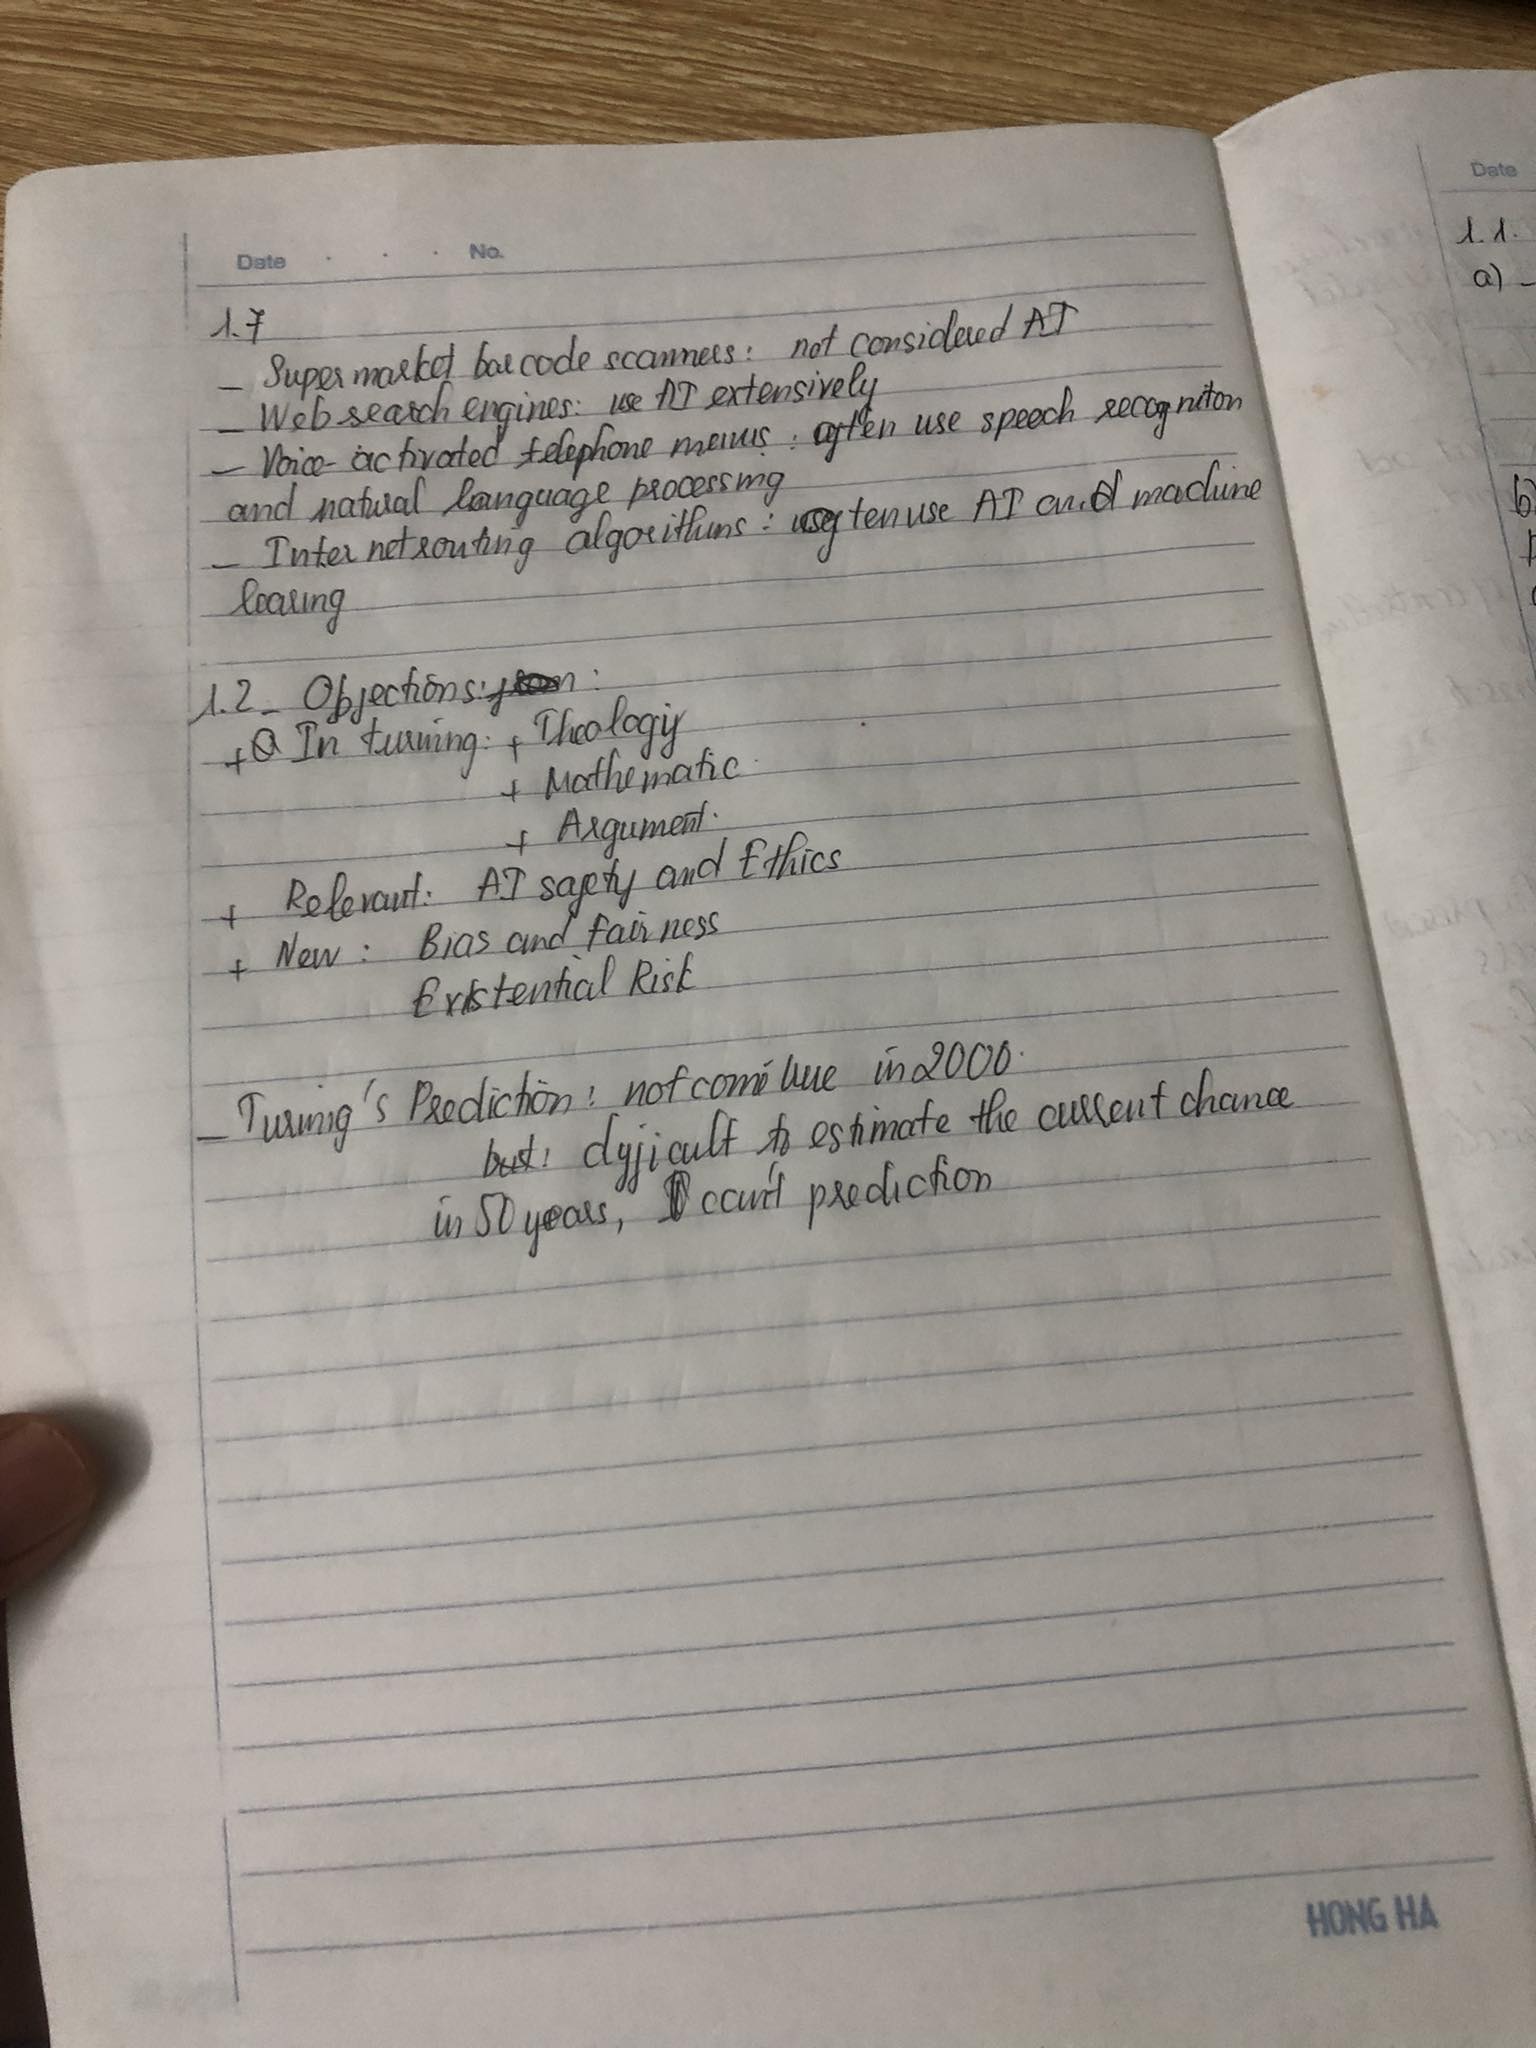 Date . . . No.
1.7
- Supermarket barcode scanners: not considered AI
- Web search engines: use AI extensively
- Voice-activated telephone menus: often use speech recogniton
and natural language processing
- Internet routing algorithms: often use AI and machine
learing
1.2 - Objections:
+ In turning: + Theology
+ Mathematic
+ Argument.
+ Relevant: AI safety and Ethics
+ New: Bias and fairness
Existential Risk
- Turing's Prediction: not come true in 2000.
but: difficult to estimate the current chance
in 50 years, I can't prediction
HONG HA
Date
1.1.
a) -
b)